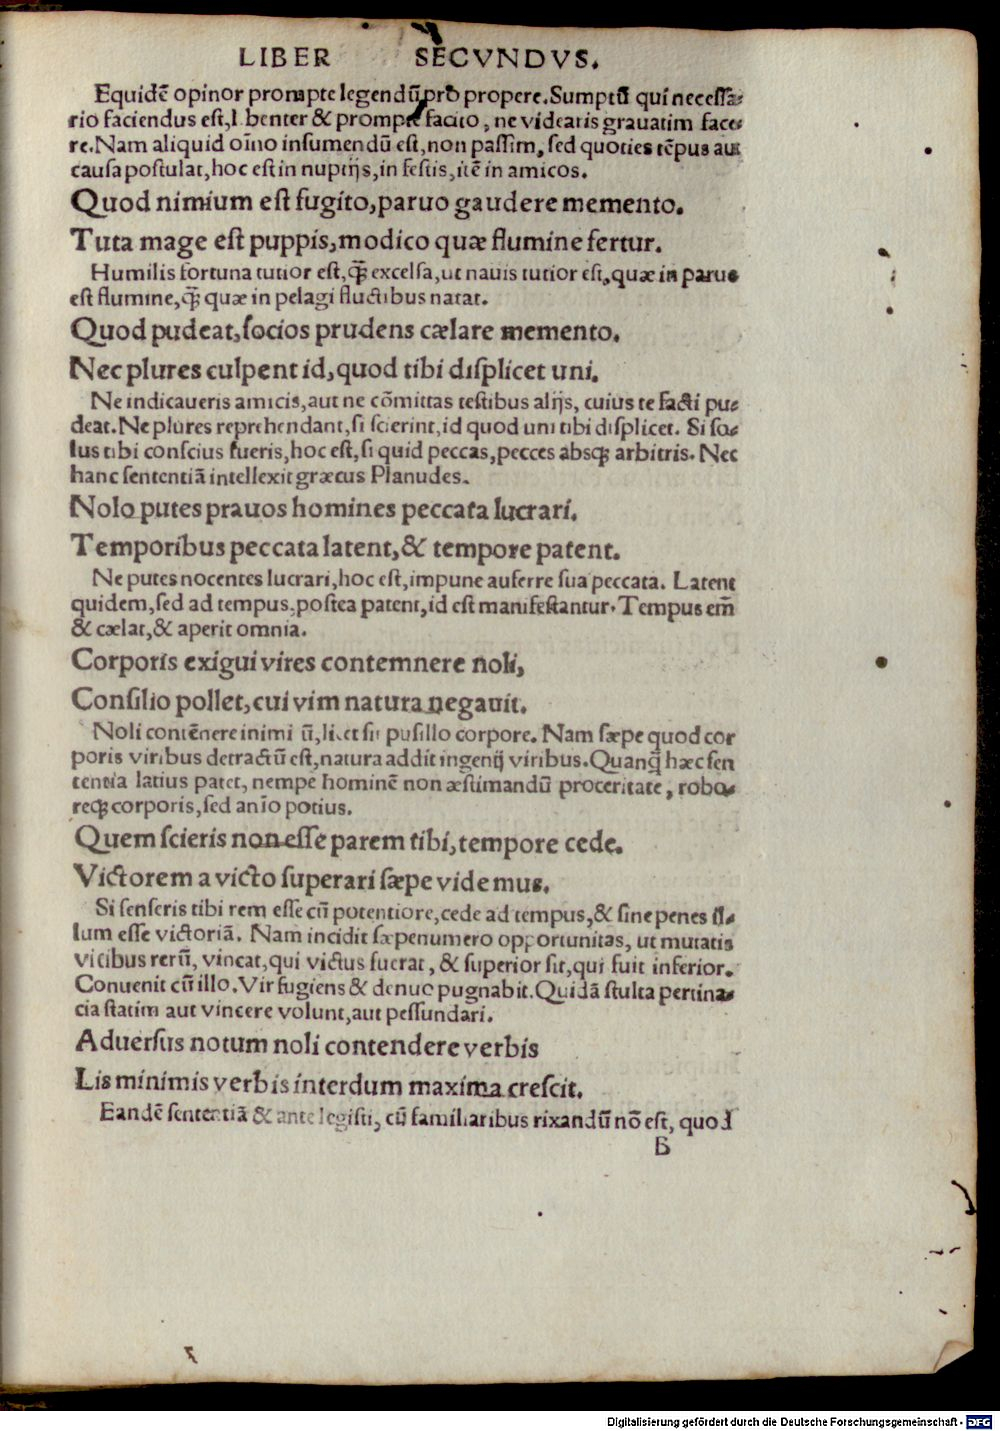 LIBER SECVNDVS.
Equidē opinor prompte legendū pro propere. Sumptū qui necessa-
rio faciendus est, libenter & prompte facito, ne videaris grauatim face-
re. Nam aliquid oīno insumendū est, non passim, sed quoties tēpus aut
causa postulat, hoc est in nuptijs, in festis, itē in amicos.
Quod nimium est fugito, paruo gaudere memento.
Tuta mage est puppis, modico quæ flumine fertur.
Humilis fortuna tutior est, q̄ꝫ excelsa, ut nauis tutior est, quæ in paruo
est flumine, q̄ꝫ quæ in pelagi fluctibus natat.
Quod pudeat, socios prudens cælare memento.
Nec plures culpent id, quod tibi displicet uni.
Ne indicaueris amicis, aut ne cōmittas testibus alijs, cuius te facti pu-
deat. Ne plures reprehendant, si scierint, id quod uni tibi displicet. Si so-
lus tibi conscius fueris, hoc est, si quid peccas, pecces absqꝫ arbitris. Nec
hanc sententiā intellexit græcus Planudes.
Nolo putes prauos homines peccata lucrari.
Temporibus peccata latent, & tempore patent.
Ne putes nocentes lucrari, hoc est, impune auferre sua peccata. Latent
quidem, sed ad tempus, postea patent, id est manifestantur. Tempus em̄
& cælat, & aperit omnia.
Corporis exigui vires contemnere noli,
Consilio pollet, cui vim natura negauit.
Noli contēnere inimicū, licet sit pusillo corpore. Nam sæpe quod cor
poris viribus detractū est, natura addit ingenij viribus. Quanq̄ hæc sen
tentia latius patet, nempe hominē non æstimandū proceritate, robo-
reqꝫ corporis, sed anīo potius.
Quem scieris non esse parem tibi, tempore cede.
Victorem a victo superari sæpe videmus.
Si senseris tibi rem esse cū potentiore, cede ad tempus, & sine penes il-
lum esse victoriā. Nam incidit sæpenumero opportunitas, ut mutatis
vicibus rerū, vincat, qui victus fuerat, & superior sit, qui fuit inferior.
Conuenit cū illo. Vir fugiens & denuo pugnabit. Quidā stulta pertina-
cia statim aut vincere volunt, aut pessundari.
Aduersus notum noli contendere verbis
Lis minimis verbis interdum maxima crescit.
Eandē sententiā & ante legisti, cū familiaribus rixandū nō est, quod
B
Digitalisierung gefördert durch die Deutsche Forschungsgemeinschaft - DFG